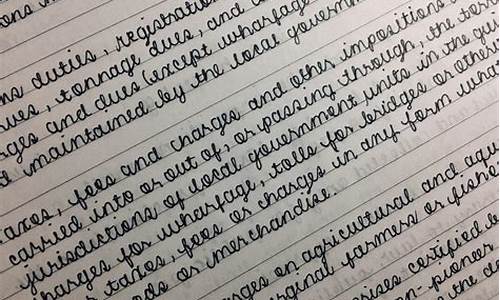 ons
ms duties, registration
ues, tonnage dues, and
ges and dues (except wharfage
t maintained by the local governm
axes, fees and charges and other impositions
carried into or out of, or passing through, the terr
jurisdictions of local government units in the gui
harges for wharfage, tolls for bridges or other
r taxes, fees or charges in any form what
ods or merchandise.
rges on agricultural and aqu
rginal farmers or fishe
rises certified
n-pioneer
the d